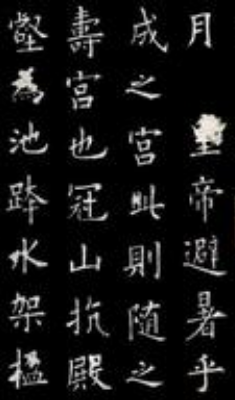 月皇帝避暑乎
成之宮此則隨之
壽宮也冠山抗殿
壑為池跨水架楹